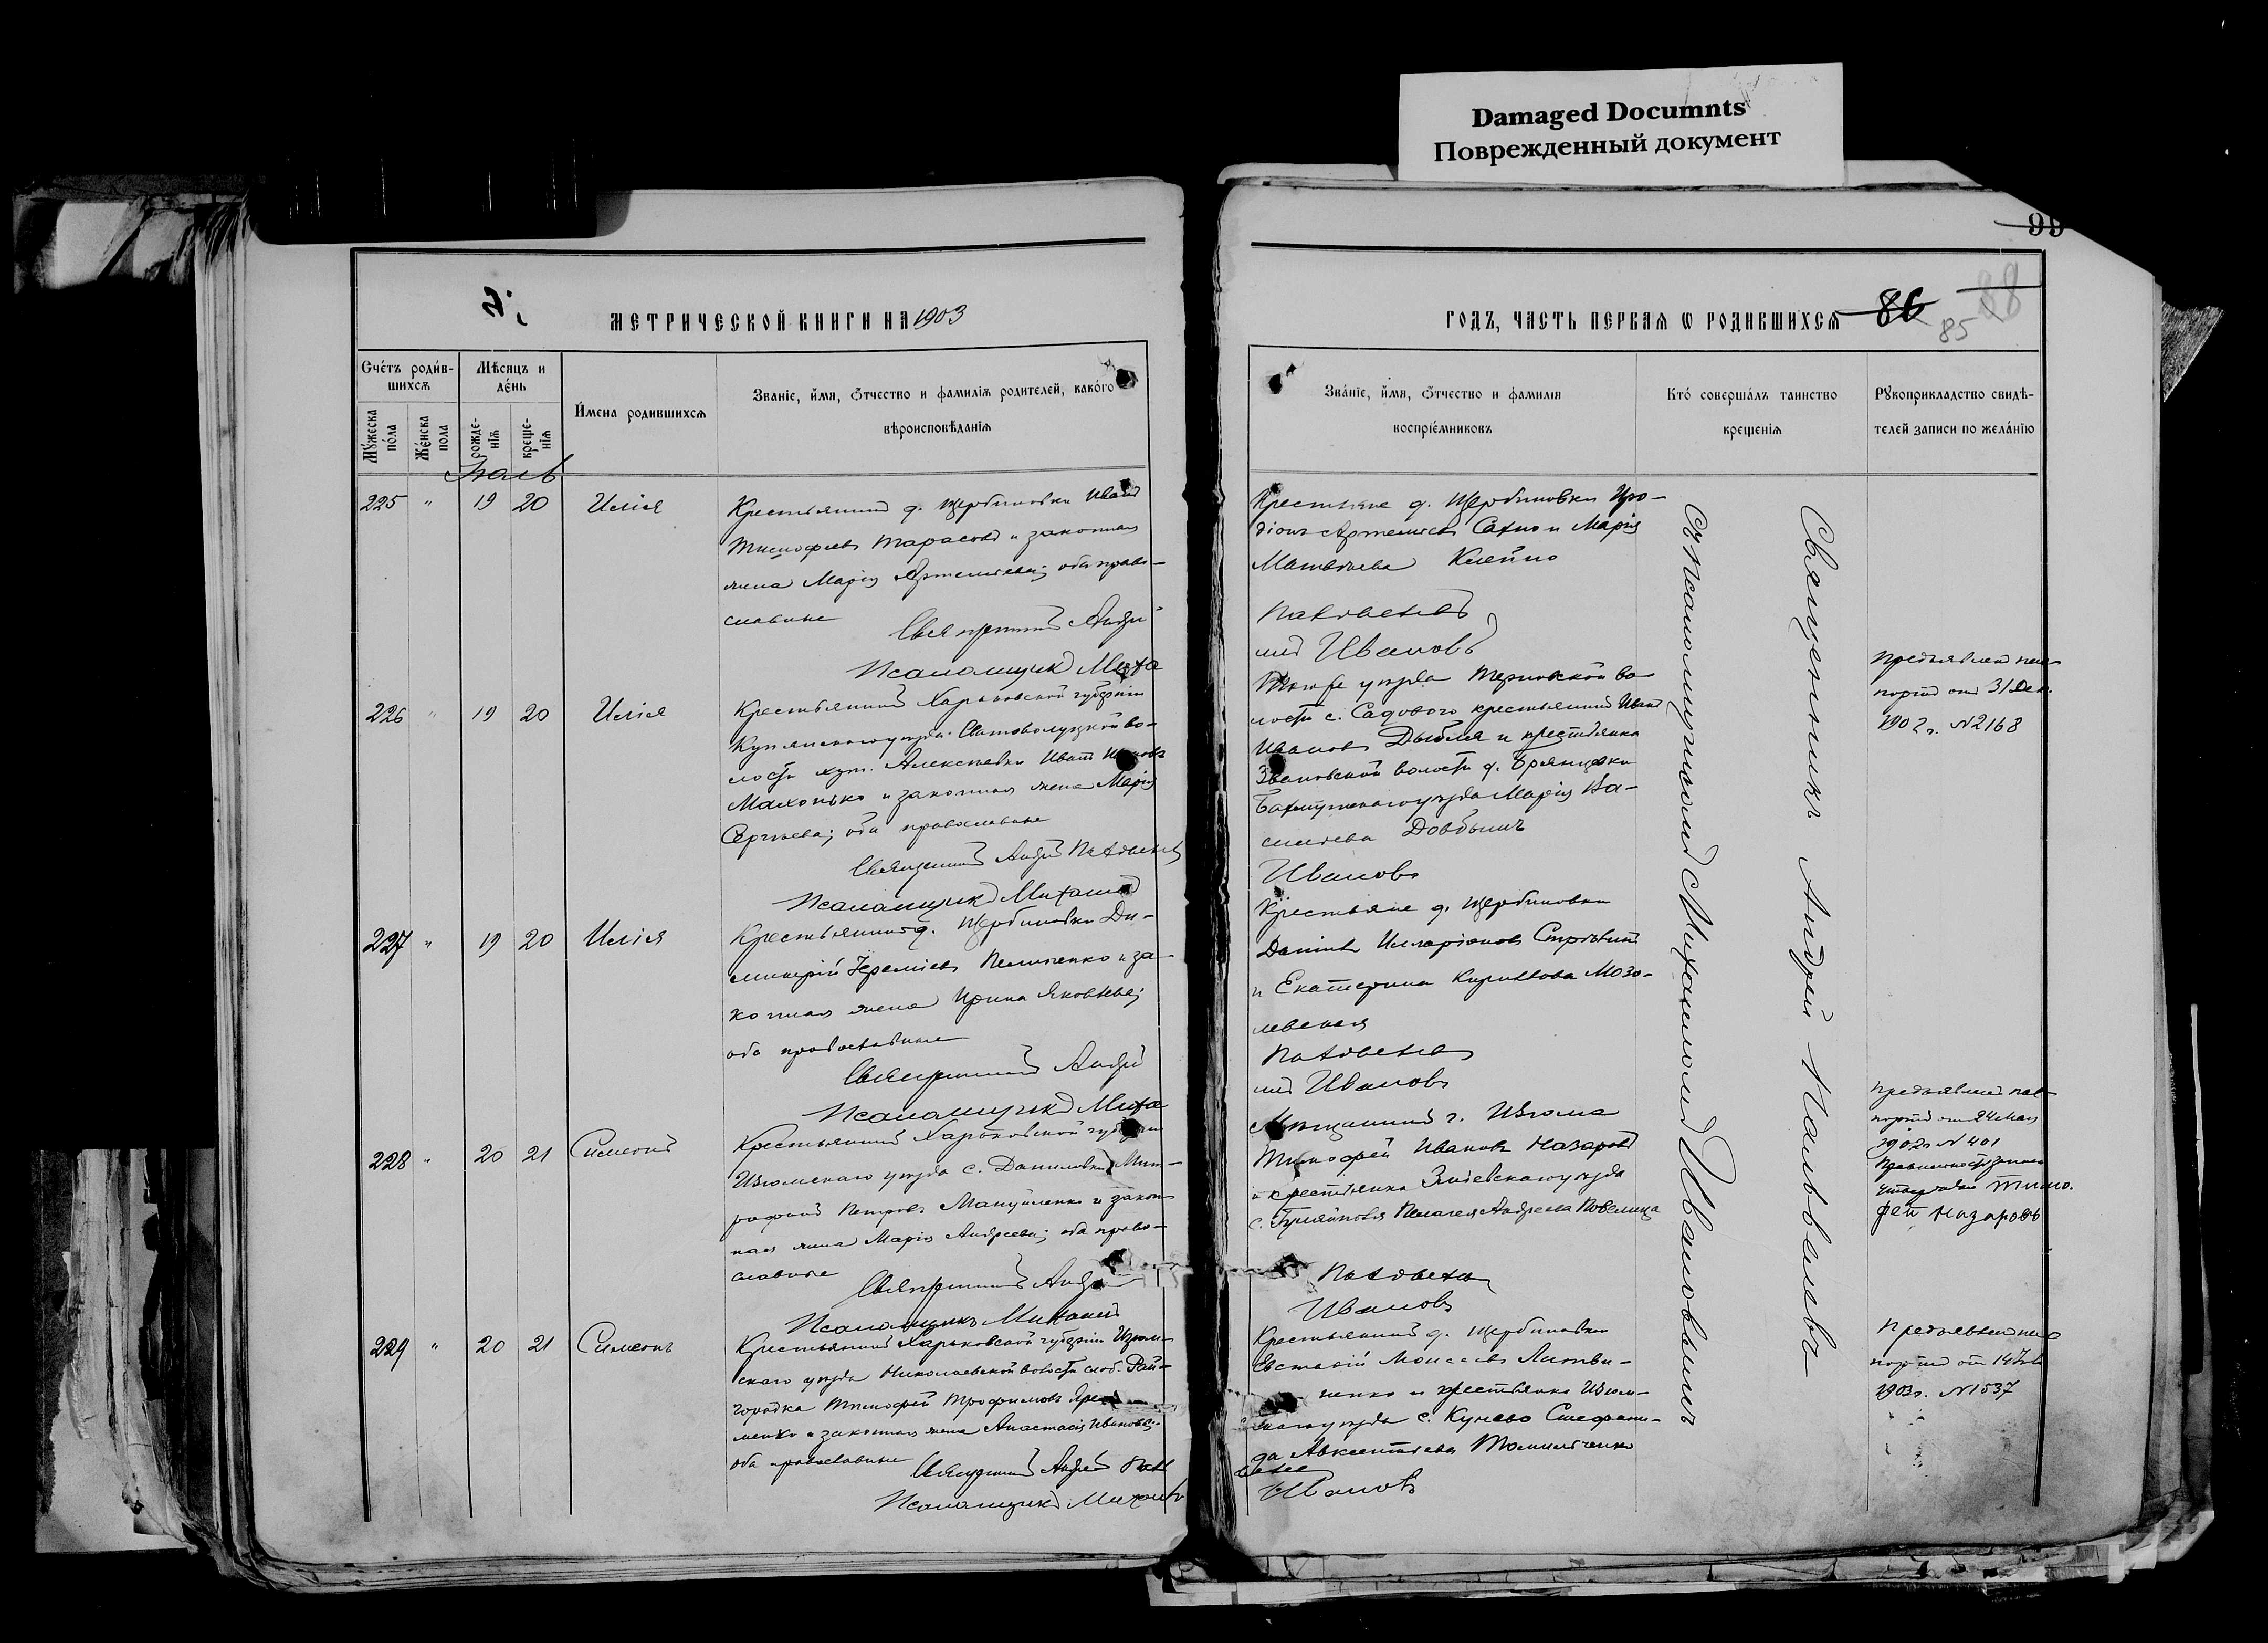 Damaged Documnts
Поврежденный документ
99
МЕТРИЧЕСКОЙ КНИГИ НА 1903
ГОДЪ, ЧАСТЬ ПЕРВАЯ Ѡ РОДИВШИХСѦ
86
85
88
Счéтъ роди́в-
шихсѧ
Мѣсяцъ и
дéнь
Мꙋ́жеска
пóла
Жéнска
пола
рожде-
нїѧ
креще-
нїѧ
И҆́мена родившихсѧ
Званїе, и҆́мѧ, ѻ҆́тчество и фамилїѧ родителей, какóго
вѣроисповѣданїѧ
Звáнїе, и҆́мѧ, ѻ҆́тчество и фамилїѧ
воспрїéмниковъ
Ктó совершáлъ таинство
крещенїѧ
Рꙋкоприкладство свидѣ-
телей записи по желáнїю
Іюль
225 " 19 20 Илія
Крестьянинъ д. Щербиновки Иванъ
Тимофеевъ Тарасовъ и законная
жена Марія Артемьева; оба право-
славные
Священникъ Андрей
Псаломщикъ Миха
Крестьяне д. Щербиновки Иро-
діонъ Артемьевъ Сахно и Марія
Матвѣева
иловъ Ивановъ
226 " 19 20 Илія
Крестьянинъ Харьковской губерніи
Купянскаго уѣзда Сватоволуцкой во-
лости хут. Алексѣевки Иванъ
Махонько и законная жена Марія
Сергѣева; оба православные
Священникъ Андрей
Псаломщикъ Михаилъ
Того же уѣзда Терновской во-
лости с. Садового крестьянинъ Иванъ
Ивановъ и крестьянка
Звановской волости д. Брянцевки
Бахмутскаго уѣзда Марія Ва-
сильева
Ивановъ
Предъявленъ пас-
портъ отъ 31 Дек.
1902 г. N 2168
227 " 19 20 Илія
Крестьянинъ д. Щербиновки Ди-
митрій Іереміевъ Пелипенко и за-
конная жена Ирина Яковлева;
оба православные
Священникъ Андрей
Псаломщикъ Миха
Крестьяне д. Щербиновки
Даніилъ Илларіоновъ
и Екатерина Кириллова Мозо-
левская
илъ Ивановъ
228 " 20 21 Симеонъ
Крестьянинъ Харьковской губерніи
Изюмскаго уѣзда с. Даниловки Мит-
рофанъ Петровъ Мануйленко и закон-
ная жена Марія Андреева; оба право-
славные
Священникъ Андрей
Псаломщикъ Михаилъ
Мѣщанинъ г. Изюма
Тимофей Ивановъ Назаровъ
и крестьянка Зміевскаго уѣзда
Пелагея Андреева
Ивановъ
Предъявленъ пас-
портъ отъ 24 Мая
1902 г. N 401
Тимо.
фей Назаровъ
229 " 20 21 Симеонъ
Крестьянинъ Харьковской губерніи Изюм-
скаго уѣзда Николаевской волости слоб. Рай-
городка Тимофей Трофимовъ Ярё-
менко и законная жена Анастасія Иванова;
оба православные
Священникъ Андрей
Псаломщикъ Михаилъ
Крестьянинъ д. Щербиновки
Евстафій Моисеевъ Литви-
ненко и крестьянка Изюм-
скаго уѣзда с. Кунево Стефани-
да Авксентьева Томильченко
Ивановъ
Предъявленъ пас-
портъ отъ 14
1903 г. N 1537
Священникъ Андрей
Съ Псаломщикомъ Михаиломъ Ивановымъ